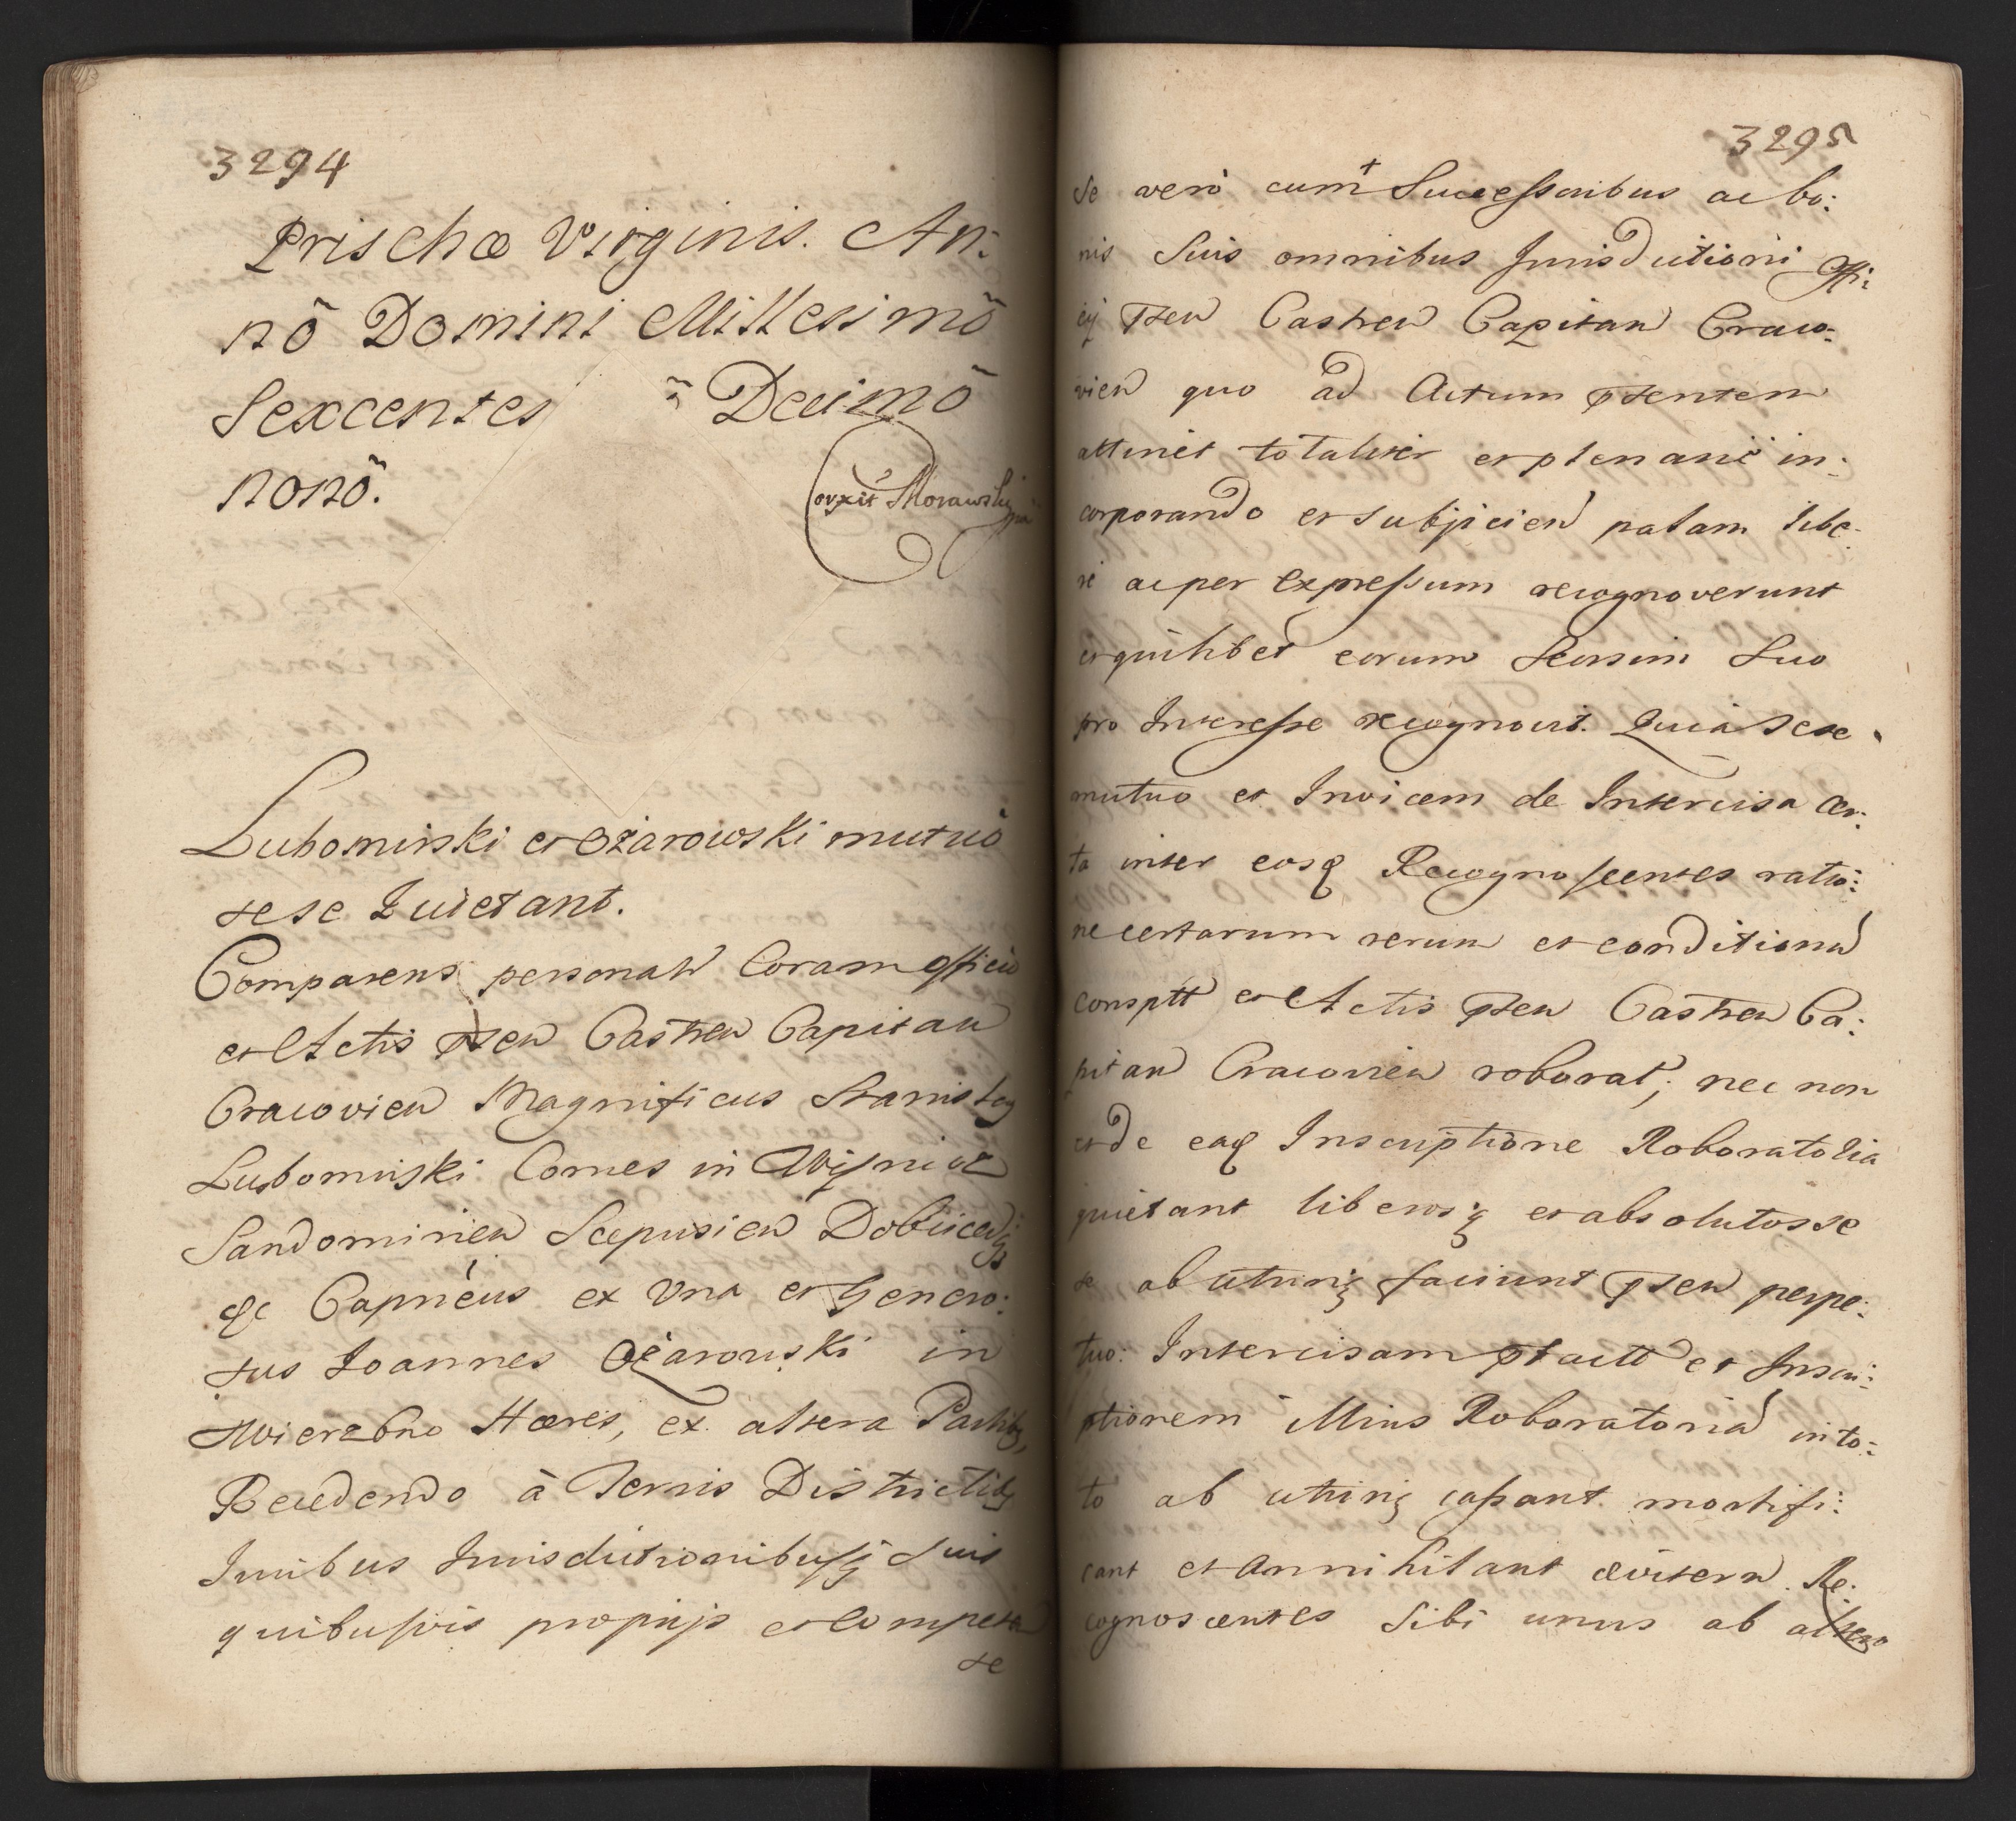 3294
Prischæ Virginis. An:
nō Domini Millesimō
Sexcentes ō Decimō
nonō.
Corrxit Morawski
Lubomirski et Ożarowski mutuò
sese Quietant.
Comparens personalr Coram officio
et Actis pnten Castren Capitan
Cracovien Magnificus Stanislaus
Lubomirski Comes in Wisnicz
Sandomirien Scepusien Dobcicen
&c Capneus ex Vna et Genero:
sus Joannes Ożarowski in
Wierzbno Hæres, ex altera Partibq,
Recedendo à Terris Districtibq
Juribus Jurisdictionibusq suis
quibusvis proprijs et Competen
se
3295
se verò cum Successoribus ac bo:
nis Suis omnibus Jurisdictioni Offi:
cij pnten Castren Capitan Craco:
vien quo ad Actum pntentem
attinet totaliter et plenariè in:
corporando et subjicien palam libe:
rè ac per Expressum recognoverunt
et quilibet eorum Seorsim Suo
pro Interesse recognovit. Quia Sese
mutuo et Invicem de Intercisa cer:
ta inter eosq Recognoscentes ratio:
ne certarum rerum et conditionu
conscptt et Actis pnten Castren Ca:
pitan Cracovien roborat; nec non
et de eaq Inscriptione Roboratoria
quietant liberosq et absolutos se
se ab utrinq faciunt pnten perpe:
tuo: Intercisam ptactt et Inscri:
ptionem illius Roboratoria in to:
to ab utrinq cassant mortifi:
cant et annihilant ævitern. Re:
cognoscentes Sibi unus ab altero